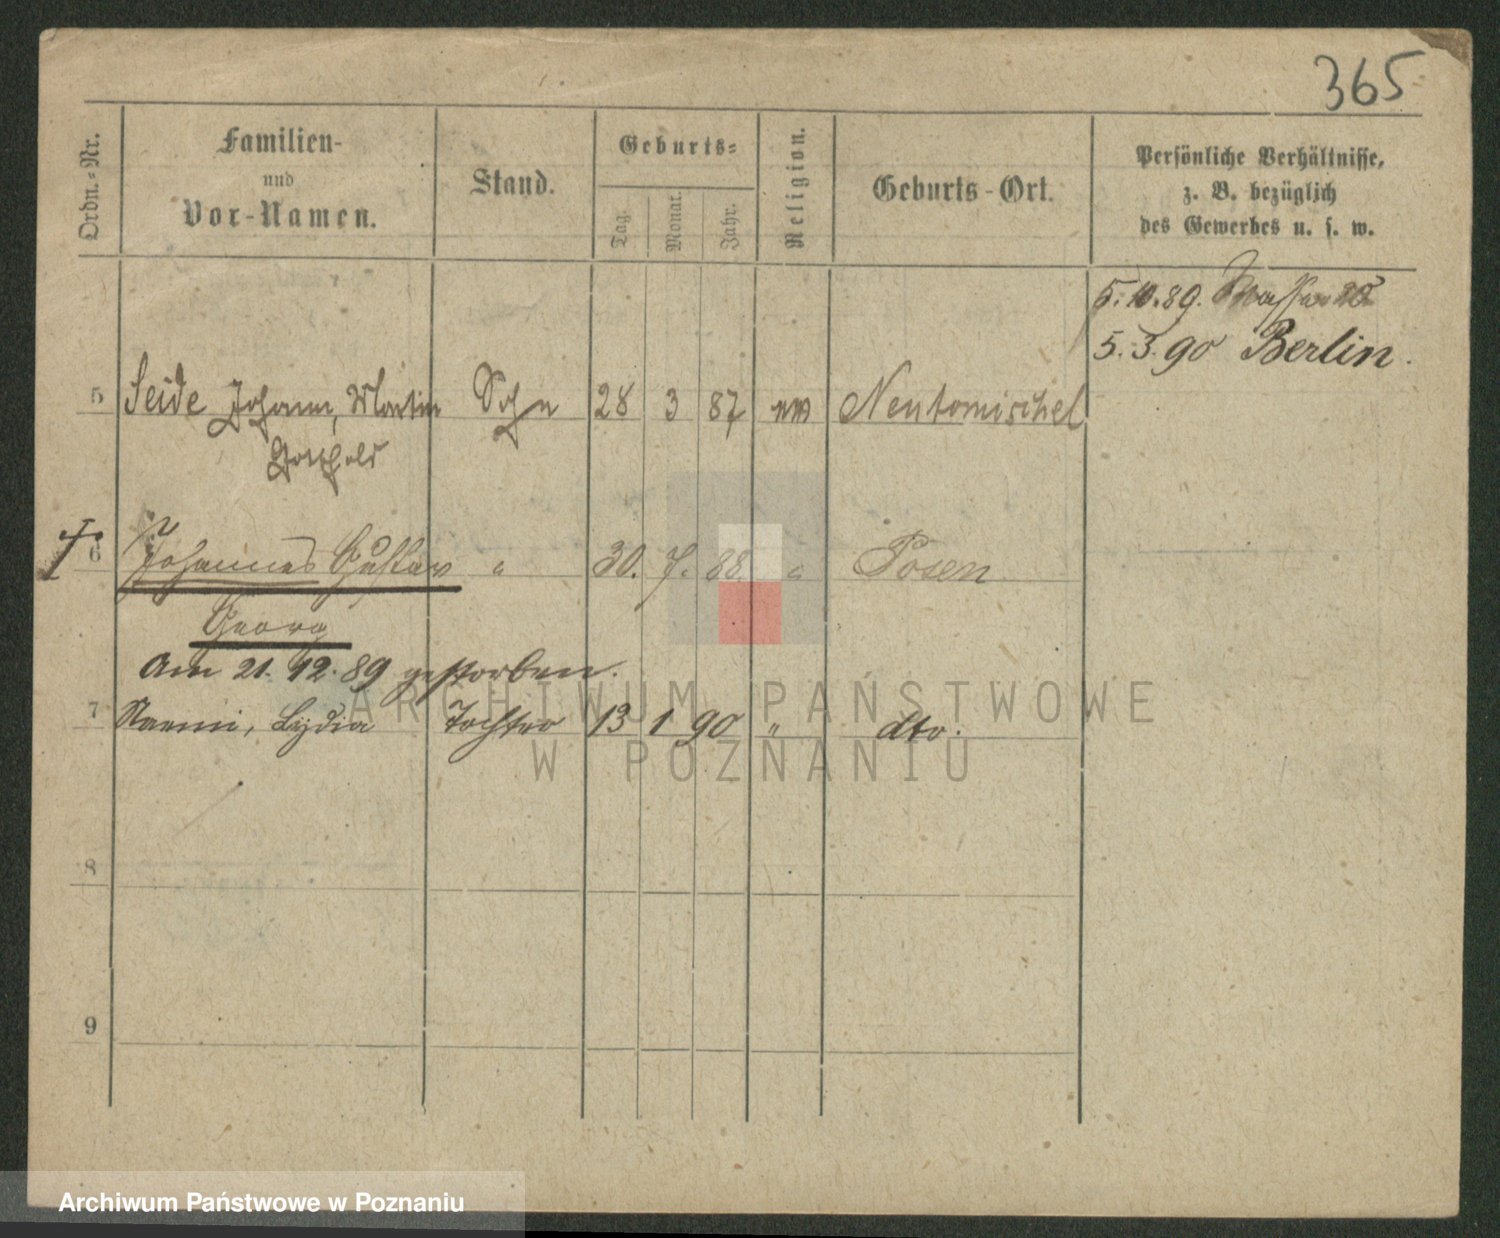 365
Ordn.-Nr.
Familien-
und
Vor-Namen.
Stand.
Geburts-
Tag.
Monat.
Jahr.
Religion.
Geburts-Ort.
Persönliche Verhältnisse,
z. B. bezüglich
des Gewerbes u. s. w.
5.10.89.
5.3.90 Berlin.
5 Seide Johann, Martin Sohn 28 3 87 Neutomischel
Gotthold
6 Johannes Gustav " 30. 7. 88 " Posen
Georg
Am 21.12.89 gestorben.
7 Naemi, Lydia Tochter 13 1 90 " dto.
8
9
ARCHIWUM PAŃSTWOWE
W POZNANIU
Archiwum Państwowe w Poznaniu